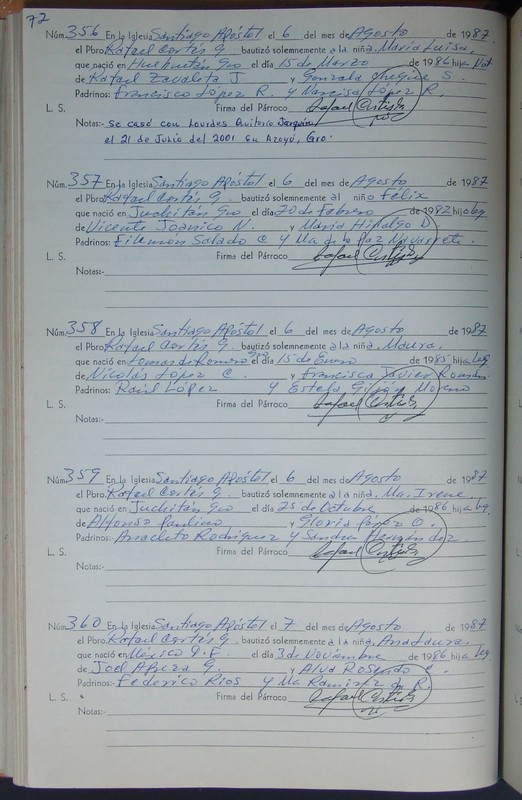 72
Núm. 356 En la Iglesia Santiago Apóstol el 6 del mes de Agosto de 1987
el Pbro. Rafael Cortés G. bautizó solemnemente a la niña. María Luisa.
que nació en Huehuetán Gro el día 15 de Marzo de 1986 hija Nat
de Rafael Zavaleta J y Gonzala S.
Padrinos: Francisco López R. y Narcisa López R.
L. S. Firma del Párroco Rafael Cortés G
Notas:- Se casó con Lourdes Quiterio Jarquín
el 21 de Julio del 2001 en Azoyú, Gro.
Núm. 357 En la Iglesia Santiago Apóstol el 6 del mes de Agosto de 1987
el Pbro. Rafael Cortés G. bautizó solemnemente al niño Félix
que nació en Juchitán Gro el día 20 de Febrero de 1982 hijo leg
de Vicente Joanico N. y María Hidalgo D
Padrinos: Filemón Salado C y Ma de la Paz Navarrete.
L. S. Firma del Párroco Rafael Cortés G
Notas:-
Núm. 358 En la Iglesia Santiago Apóstol el 6 del mes de Agosto de 1987
el Pbro. Rafael Cortés G. bautizó solemnemente a la niña. Maura.
que nació en Lomas de Romero Gro el día 15 de Enero de 1985 hija leg
de Nicolás López C. y Francisca Javier Román
Padrinos: Raúl López y Estela Girón Moreno
L. S. Firma del Párroco Rafael Cortés G
Notas:-
Núm. 359 En la Iglesia Santiago Apóstol el 6 del mes de Agosto de 1987
el Pbro. Rafael Cortés G. bautizó solemnemente a la niña. Ma. Irene.
que nació en Juchitán Gro el día 25 de Octubre de 1986 hija leg.
de Alfonso Paulino y Gloria López O.
Padrinos: Anacleto Rodríguez y Sandra Hernández.
L. S. Firma del Párroco Rafael Cortés G
Notas:-
Núm. 360 En la Iglesia Santiago Apóstol el 7 del mes de Agosto de 1987
el Pbro. Rafael Cortés G. bautizó solemnemente a la niña. Ana Laura.
que nació en México D.F. el día 3 de Noviembre de 1986 hija leg
de Joel G. y Alva Rosado
Padrinos: Federico Rios y Ma Ramírez de R.
L. S. Firma del Párroco Rafael Cortés G
Notas:-